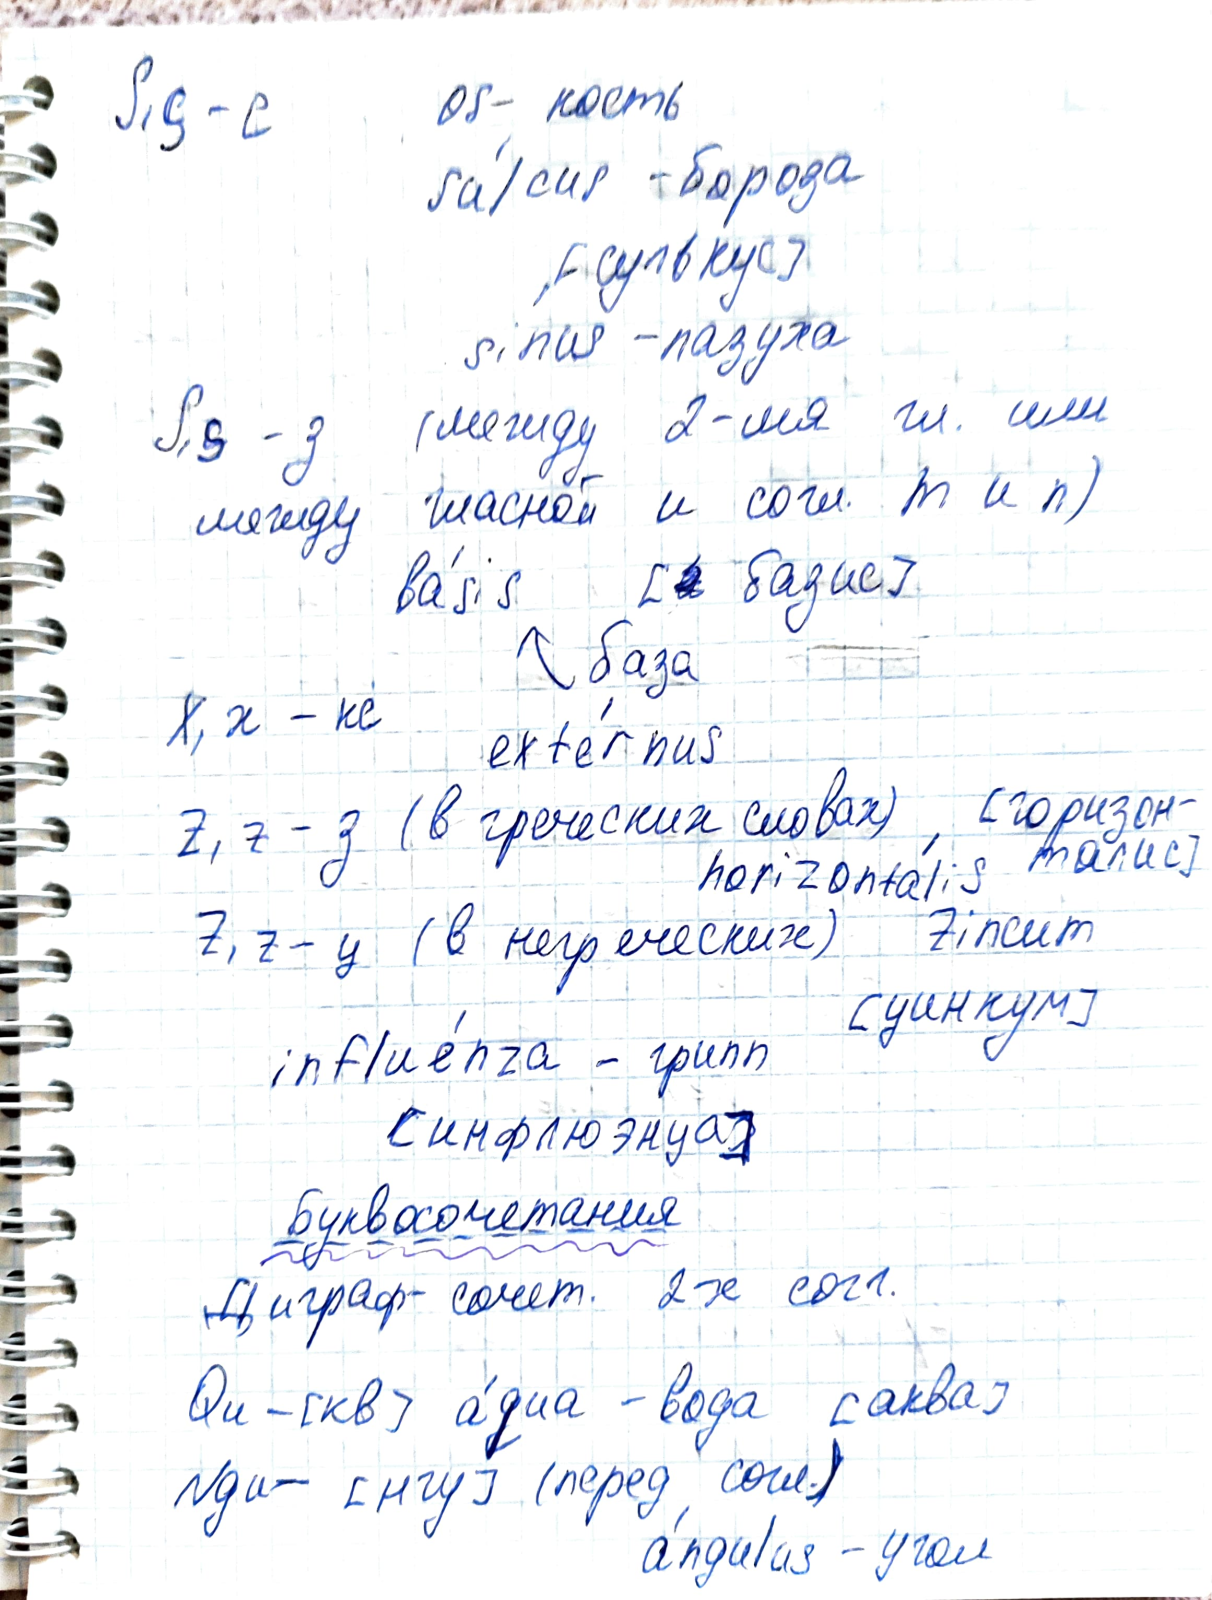 S, s - с os - кость
súlcus - бороза
[сулькус]
sínus - пазуха
S, s - з (между 2-мя гл. или
между гласной и согл. m и n)
básis [базис]
база
X, x - кс
extérnus
Z, z - з (в греческих словах), [горизон-
horizontális талис]
Z, z - ц (в негреческих) Zincum
[цинкум]
influénza - грипп
[инфлюэнца]
Буквосочетания
Диграф - сочет. 2-х согл.
Qu - [кв] áqua - вода [аква]
Ngu - [нгу] (перед согл.)
ángulus - угол